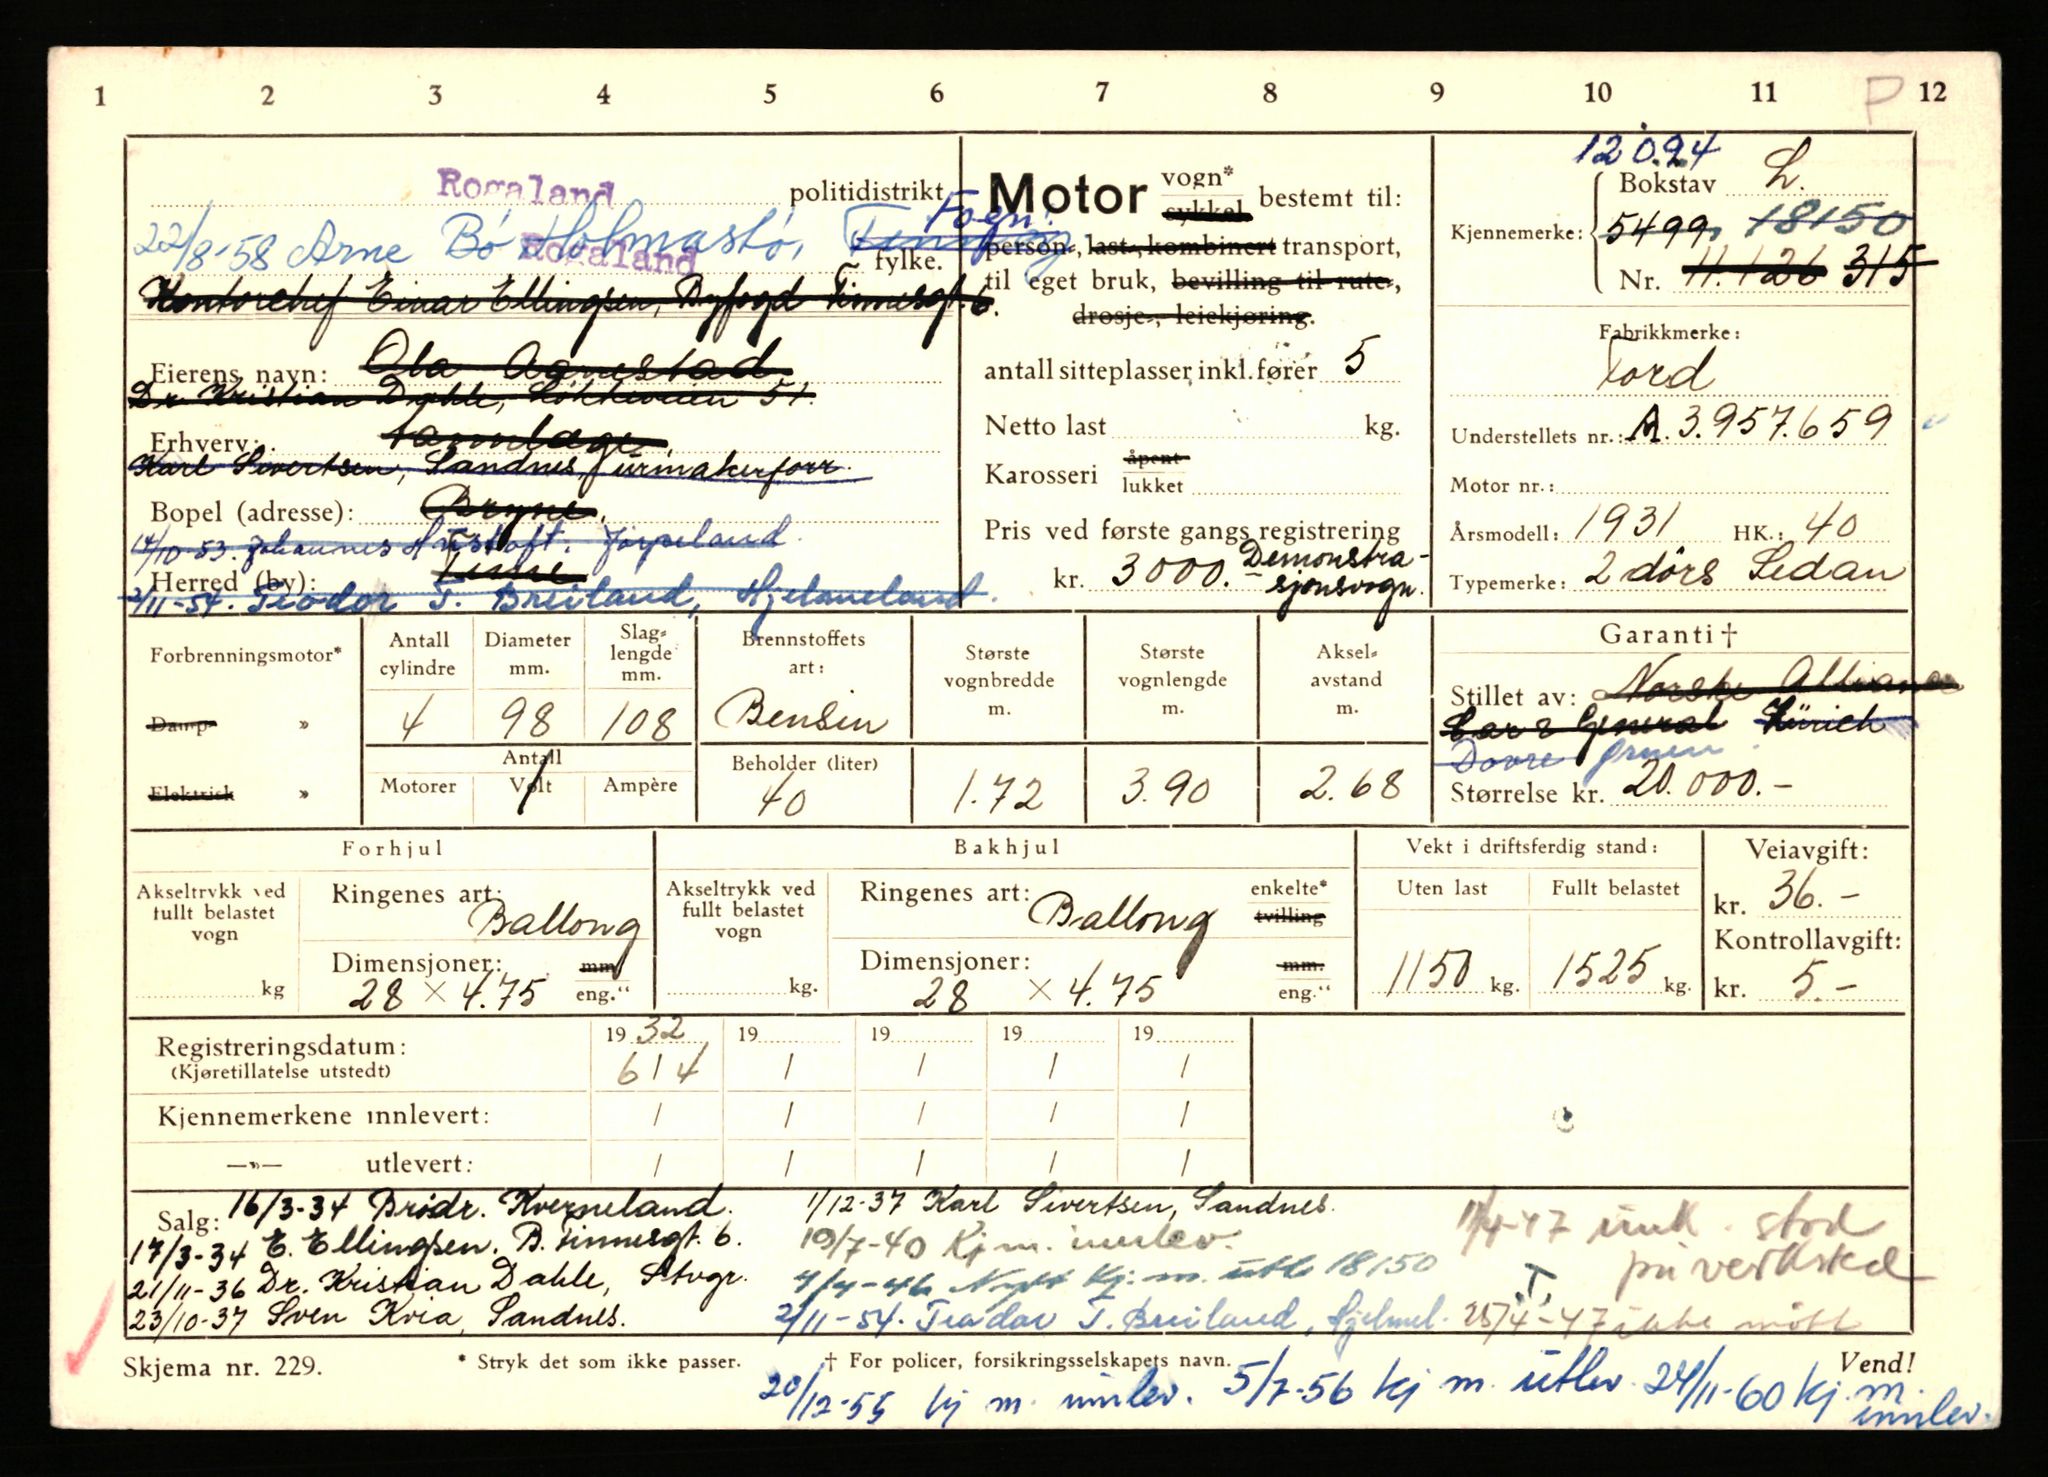 1 2 3 4 5 6 7 8 9 10 11 P 12
Rogaland politidistrikt
22/8-58 Arne Bø Holmastø, Fogn.
Rogaland fylke.
Kontorchef Einar Ellingsen, Byfogd Finnesgt. 6.
Eierens navn: Ola Aanestad
Dr. Kristian Dahle, Løkkeveien 51.
Erhverv: Tannlæge
Karl Sivertsen, Sandnes, urmakerforr.
Bopel (adresse): Bryne.
14/10-53. Johannes Jørpeland.
Herred (by): Time
2/11-54. Teodor T. Breiland, Hjelmeland.
Motor vogn* sykkel bestemt til:
person-, last-, kombinert transport,
til eget bruk, bevilling til rute-,
drosje-, leiekjøring.
antall sitteplasser inkl. fører 5
Netto last kg.
Karosseri åpent lukket
Pris ved første gangs registrering
kr. 3000.- Demonstra-
sjonsvogn.
12094
Bokstav L.
Kjennemerke: 5499, 18150
Nr. 11.126 315
Fabrikkmerke:
Ford
Understellets nr.: A. 3.957.659
Motor nr.:
Årsmodell: 1931 HK.: 40
Typemerke: 2 dørs Sedan
Forbrenningsmotor*
Damp »
Elektrisk »
Antall cylindre
4
Diameter mm.
98
Slag-lengde mm.
108
Antall
Motorer Volt Ampère
Brennstoffets art:
Bensin
Beholder (liter)
40
Største vognbredde m.
1.72
Største vognlengde m.
3.90
Aksel-avstand m.
2.68
Garanti †
Stillet av: Norske Alliance
Car & General Zürich
Dovre
Størrelse kr. 20.000.-
Forhjul
Akseltrykk ved fullt belastet vogn
kg
Ringenes art:
Ballong
Dimensjoner: mm
28 × 4.75 eng."
Bakhjul
Akseltrykk ved fullt belastet vogn
kg.
Ringenes art: enkelte*
Ballong tvilling
Dimensjoner: mm.
28 × 4.75 eng."
Vekt i driftsferdig stand:
Uten last Fullt belastet
1150 kg. 1525 kg.
Veiavgift:
kr. 36.-
Kontrollavgift:
kr. 5.-
Registreringsdatum: 19 32 19 19 19 19
(Kjøretillatelse utstedt) 6 / 4 / / / /
Kjennemerkene innlevert: / / / / /
—»— utlevert: / / / / /
Salg: 16/3-34 Brødr. Kverneland.
17/3-34 E. Ellingsen. B. Finnesgt. 6.
21/11-36 Dr. Kristian Dahle, Stvgr.
23/10-37 Sven Kvia, Sandnes.
1/12-37 Karl Sivertsen, Sandnes.
19/7-40 Kj. m. innlev.
4/4-46 Nytt Kj. m. utl. 18150
2/11-54. Teodor T. Breiland, Hjelmel.
11/4-47 unk. stod
på verksted
25/4-47 ikke møtt
Skjema nr. 229. * Stryk det som ikke passer. † For policer, forsikringsselskapets navn. Vend!
20/12-55 kj m. innlev. 5/7-56 kj m. utlev. 24/11-60 kj. m.
innlev.